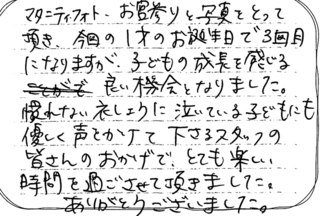 マタニティフォト、お宮参りと写真をとって
頂き、今回の1才のお誕生日で3回目
になりますが、子どもの成長を感じる
良い機会となりました。
慣れない衣しょうに泣いている子どもにも
優しく声をかけて下さるスタッフの
皆さんのおかげで、とても楽しい
時間を過ごさせて頂きました。
ありがとうございました。